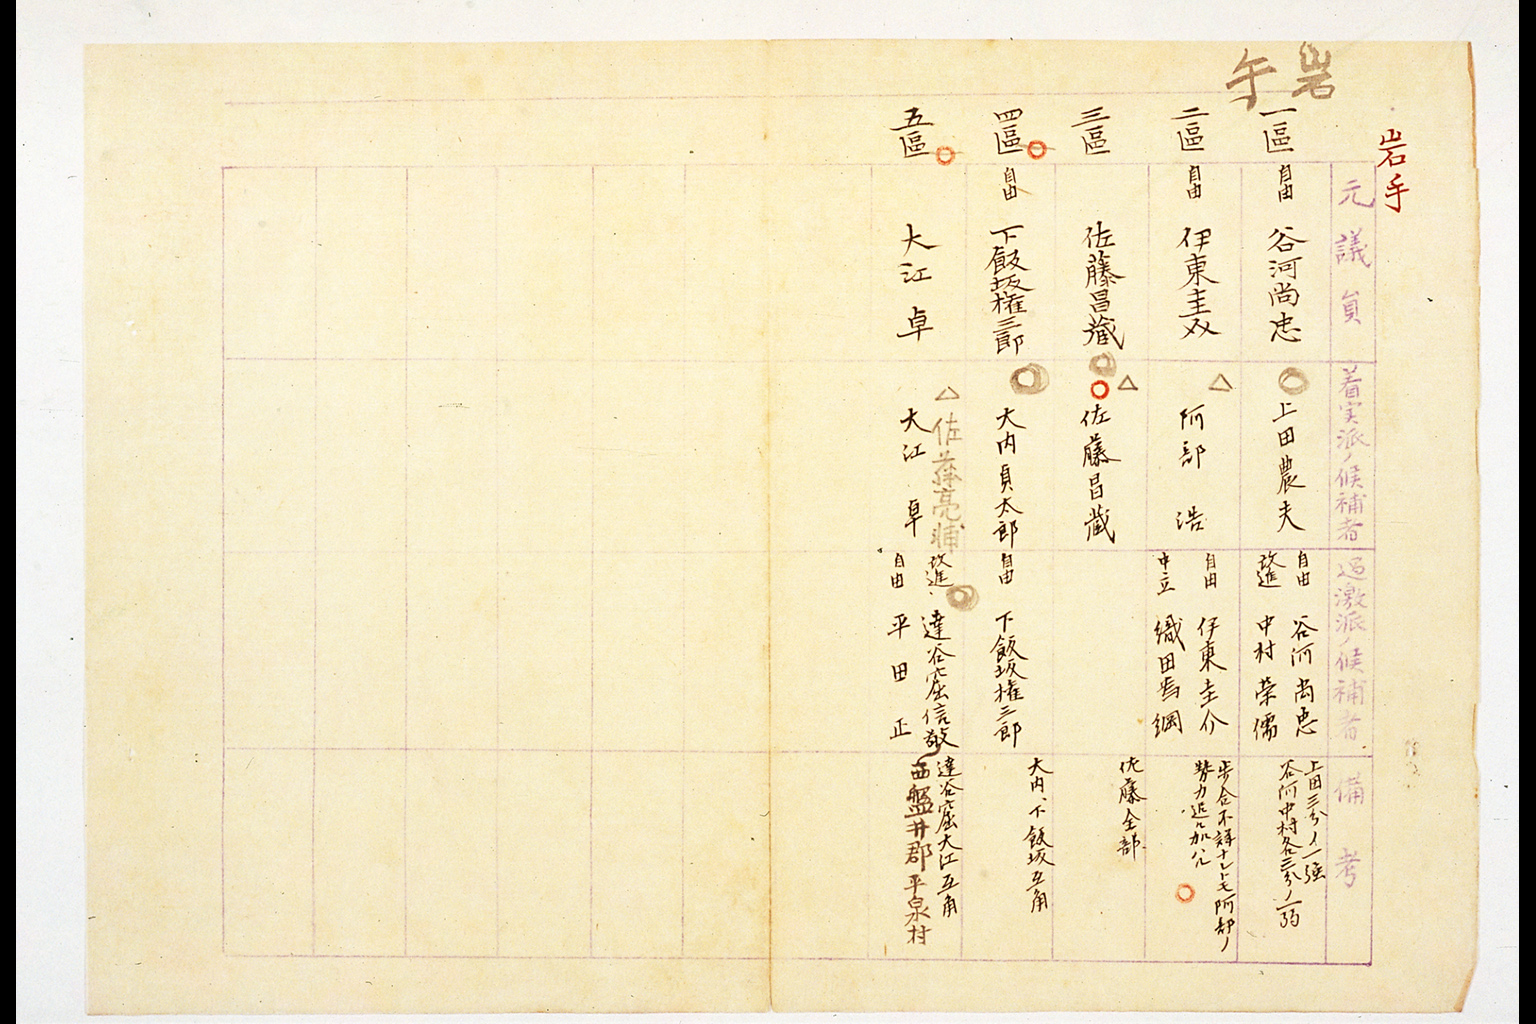 岩手
岩手
元議員
着実派ノ候補者
過激派ノ候補者
備考
一區
自由 谷河尚忠
上田農夫
自由 谷河尚忠
改進 中村榮儒
上田三分ノ一強
谷河中村各三分ノ一弱
二區
自由 伊東圭介
阿部浩
自由 伊東圭介
中立 織田為綱
歩合不詳ナレトモ阿部ノ
勢力追々加ハル
三區
佐藤昌蔵
佐藤昌蔵
佐藤全部
四區
自由 下飯坂権三郎
大内貞太郎
自由 下飯坂権三郎
大内、下飯坂互角
五區
大江卓
佐藤亮輔
大江卓
改進 達谷窟信敬
自由 平田正
達谷窟大江互角
西盤井郡平泉村